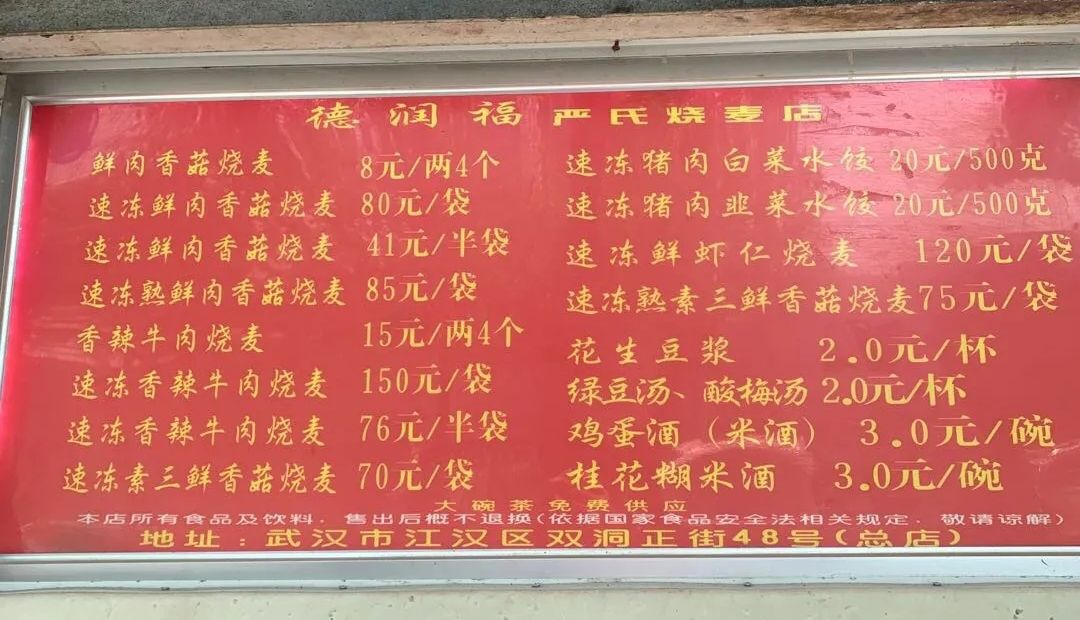 德润福 严氏烧麦店
鲜肉香菇烧麦 8元/两4个
速冻鲜肉香菇烧麦 80元/袋
速冻鲜肉香菇烧麦 41元/半袋
速冻熟鲜肉香菇烧麦 85元/袋
香辣牛肉烧麦 15元/两4个
速冻香辣牛肉烧麦 150元/袋
速冻香辣牛肉烧麦 76元/半袋
速冻素三鲜香菇烧麦 70元/袋
速冻猪肉白菜水饺 20元/500克
速冻猪肉韭菜水饺 20元/500克
速冻鲜虾仁烧麦 120元/袋
速冻熟素三鲜香菇烧麦 75元/袋
花生豆浆 2.0元/杯
绿豆汤、酸梅汤 2.0元/杯
鸡蛋酒（米酒） 3.0元/碗
桂花糊米酒 3.0元/碗
大碗茶免费供应
本店所有食品及饮料，售出后概不退换(依据国家食品安全法相关规定，敬请谅解)
地址：武汉市江汉区双洞正街48号(总店)